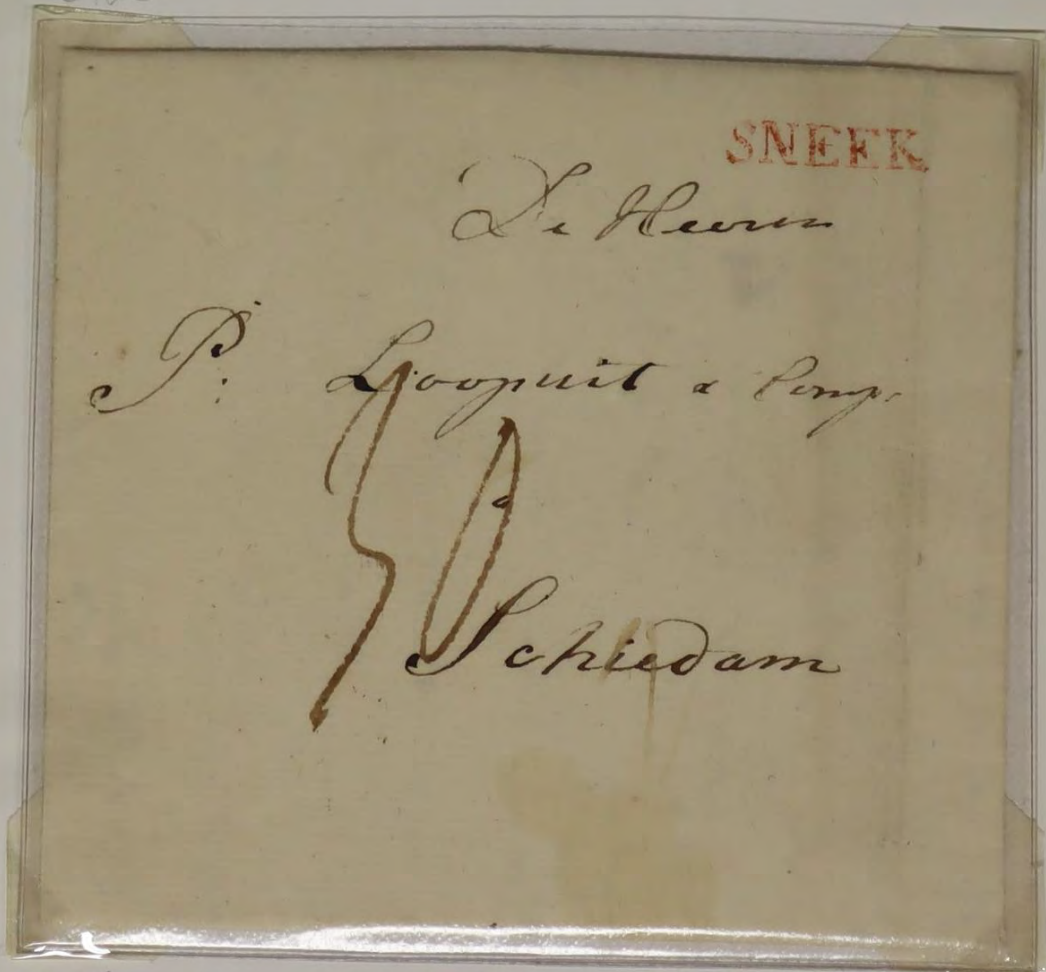 SNEEK
De Heeren
P: Loopuit & Comp.
30
Schiedam